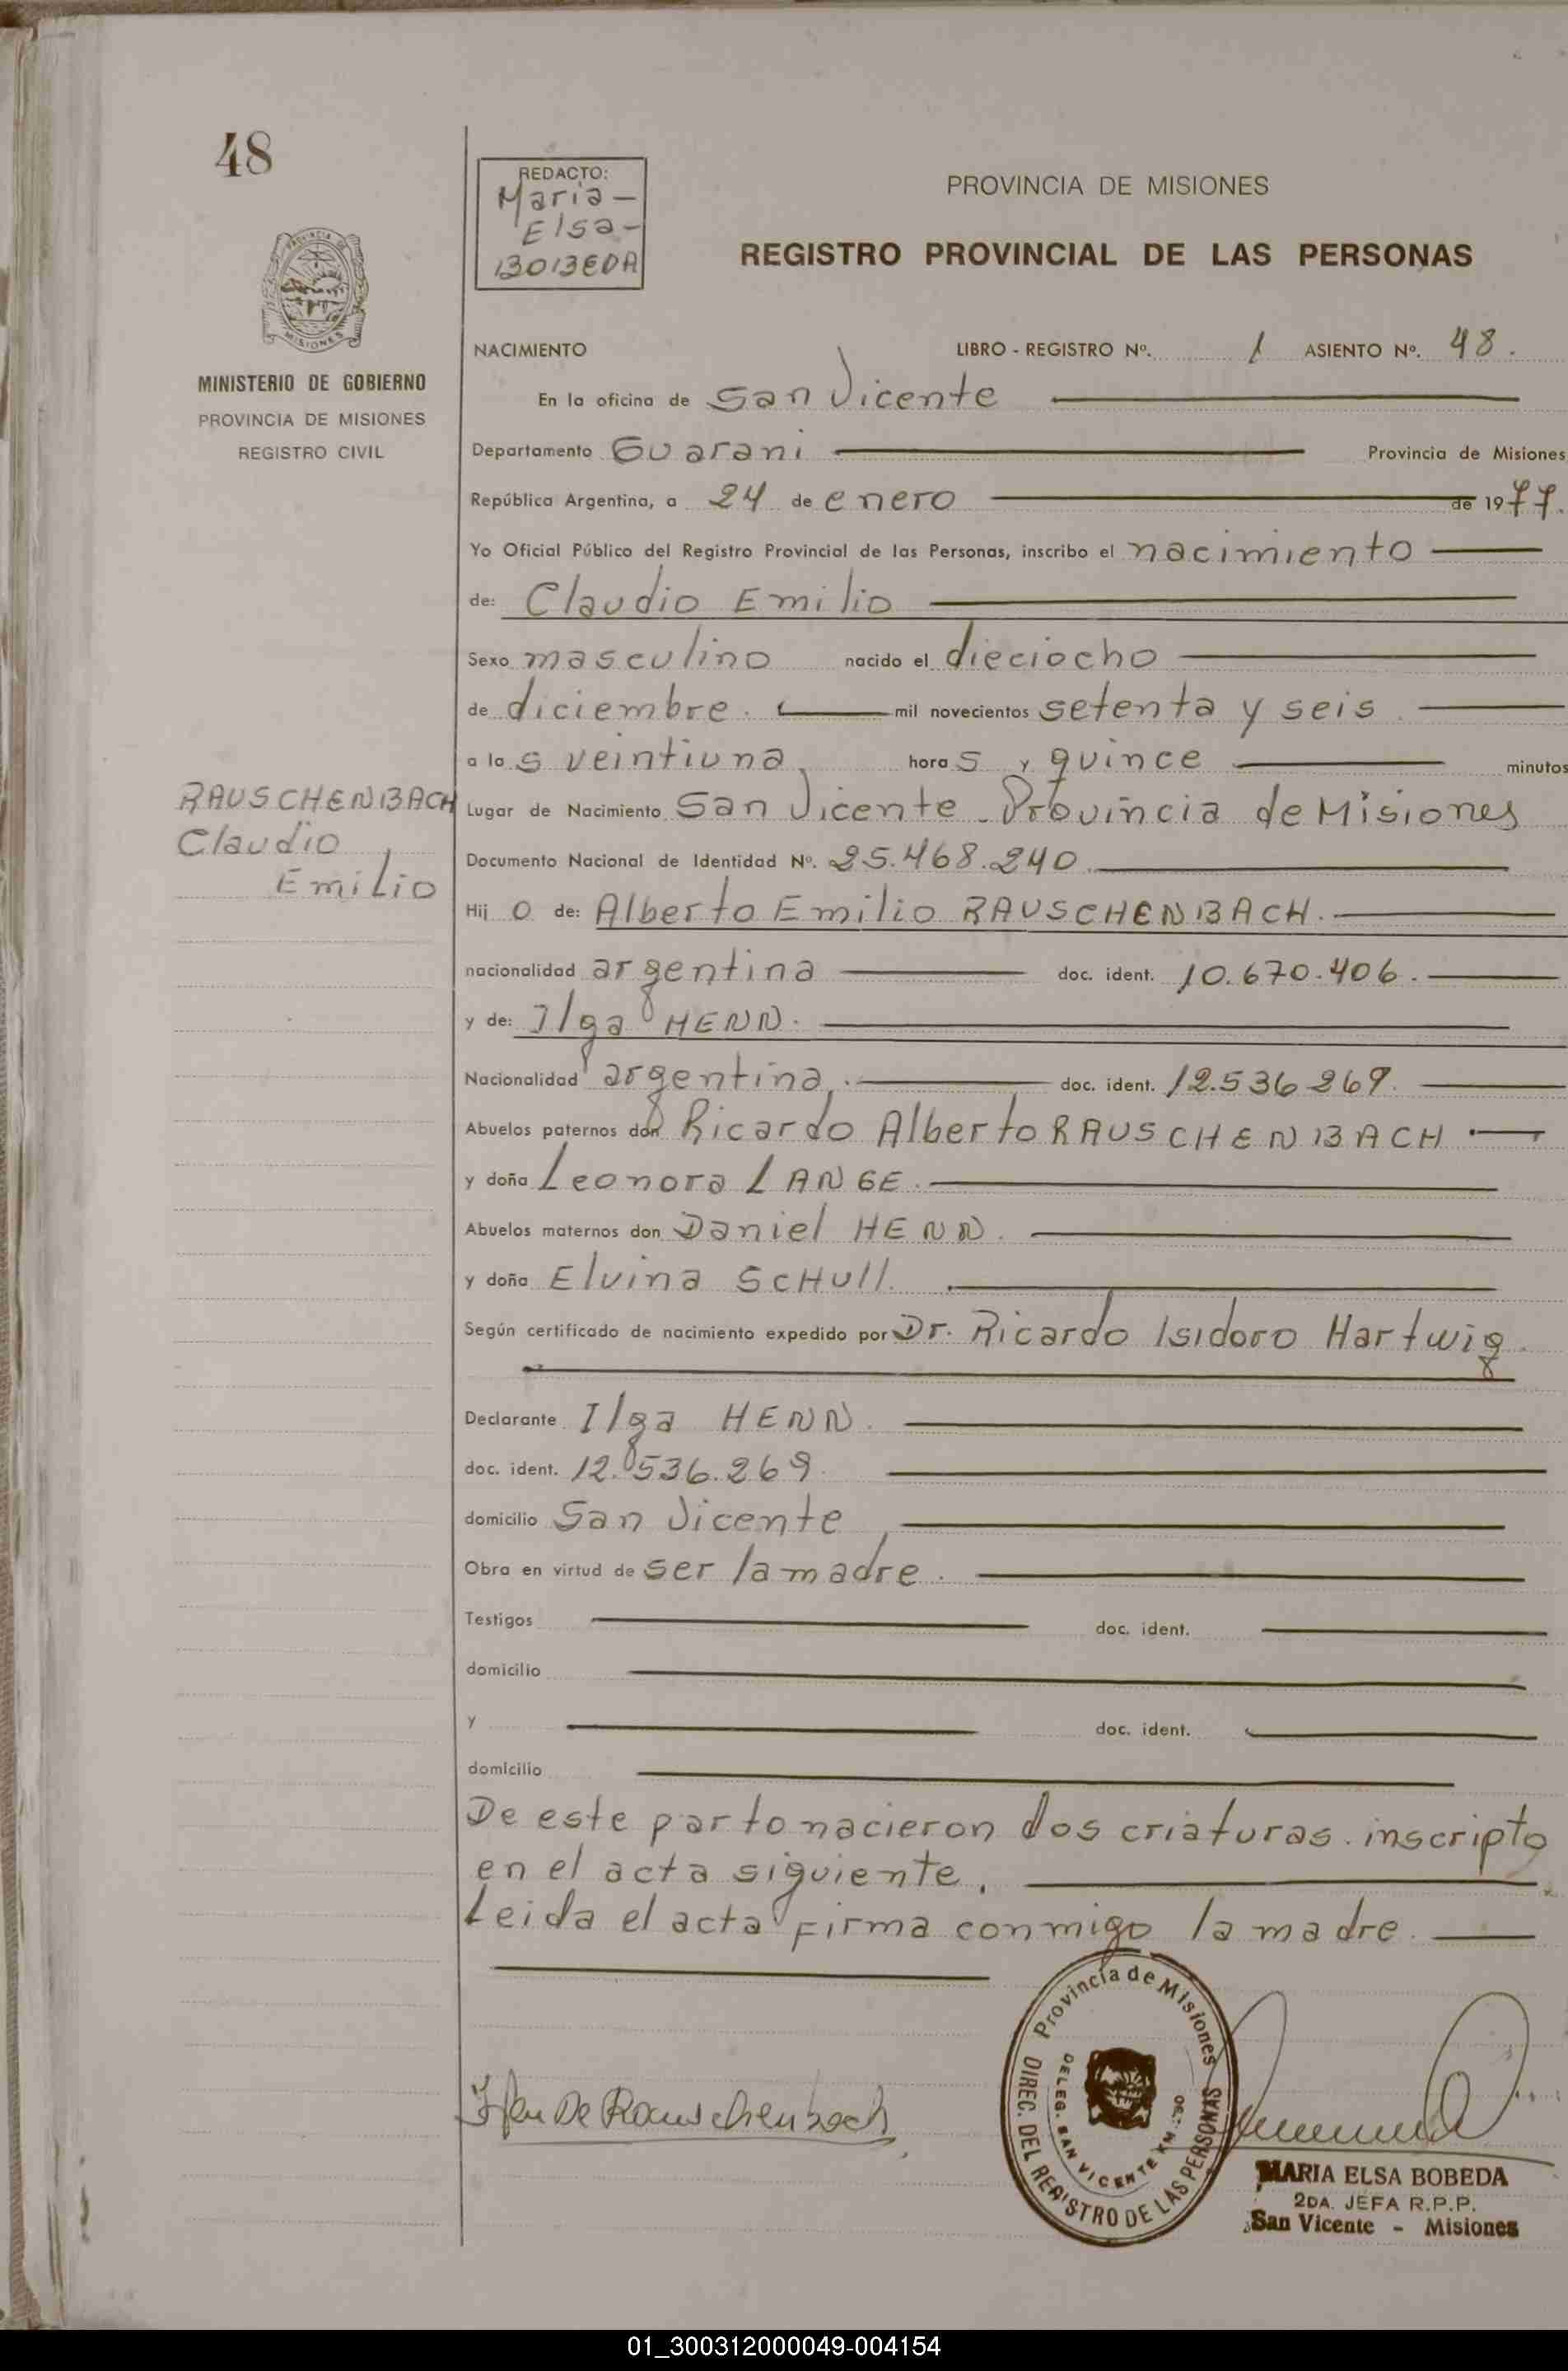 48
REDACTO:
Maria -
Elsa -
BOBEDA
PROVINCIA DE MISIONES
REGISTRO PROVINCIAL DE LAS PERSONAS
PROVINCIA DE
MISIONES
MINISTERIO DE GOBIERNO
PROVINCIA DE MISIONES
REGISTRO CIVIL
NACIMIENTO LIBRO - REGISTRO Nº. 1 ASIENTO Nº. 48.
En la oficina de San Vicente
Departamento Guarani Provincia de Misiones
República Argentina, a 24 de enero de 1977.
Yo Oficial Público del Registro Provincial de las Personas, inscribo el nacimiento
de: Claudio Emilio
Sexo masculino nacido el dieciocho
de diciembre. mil novecientos setenta y seis.
a las veintiuna horas y quince minutos
RAUSCHENBACH
Claudio
Emilio
Lugar de Nacimiento San Vicente - Provincia de Misiones
Documento Nacional de Identidad Nº. 25.468.240.
Hijo de: Alberto Emilio RAUSCHENBACH.
nacionalidad argentina doc. ident. 10.670.406.
y de: Ilga HENN.
Nacionalidad argentina. doc. ident. 12.536.269.
Abuelos paternos don Ricardo Alberto RAUSCHENBACH.
y doña Leonora LANGE.
Abuelos maternos don Daniel HENN.
y doña Elvina SCHUll.
Según certificado de nacimiento expedido por Dr. Ricardo Isidoro Hartwig.
Declarante Ilga HENN.
doc. ident. 12.536.269.
domicilio San Vicente
Obra en virtud de ser la madre.
Testigos doc. ident.
domicilio
y doc. ident.
domicilio
De este parto nacieron dos criaturas. inscripto
en el acta siguiente.
Leida el acta firma conmigo la madre.
De Rauschenbach
Provincia de Misiones
DIREC. DEL REGISTRO DE LAS PERSONAS
DELEG. SAN VICENTE KM.
MARIA ELSA BOBEDA
2DA. JEFA R.P.P.
San Vicente - Misiones
01_300312000049-004154